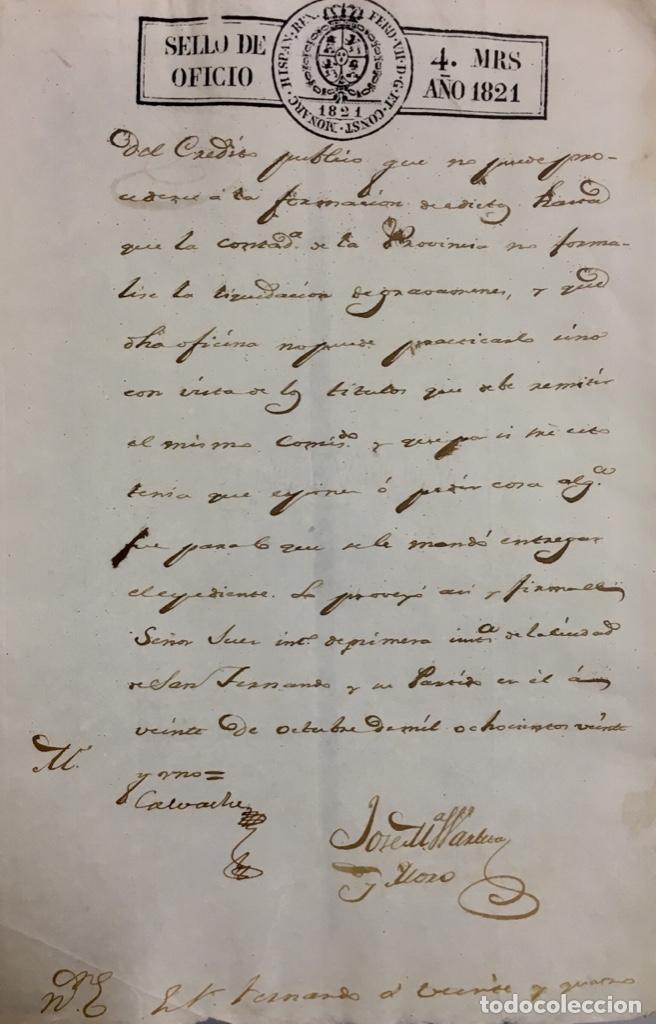 SELLO DE
OFICIO
HISPAN. REX. FERD. VII. D. G. ET CONST. MONARC.
1821
4. MRS
AÑO 1821
Del Credito publico que no puede pro-
cederse á la formacion de edictos hasta
que la contad.ª de la Provincia no forma-
lise la liquidacion de gravamenes, y que
dha oficina no puede practicarlo sino
con vista de los titulos que debe remitir
el mismo Comis.do y que para si sre esto
tenia que esponer ó pedir cosa alg.ª
fue para lo que se le mandó entregar
el espediente. Lo proveyó asi y firma el
Señor Juez int.º de primera inst.ª de la Ciudad
de San Fernando y su Partido en él á
veinte de octubre de mil ochocientos veinte
y uno=
M.
Calvache
José M.ª
y Moro
En S. Fernando á veinte y quatro
todocoleccion